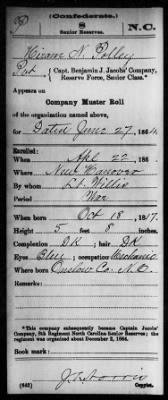 (Confederate.)
S
Senior Reserves.
N.C.
Hiram N. Polley
Pvt
Capt. Benjamin J. Jacobs' Company,
Reserve Force, Senior Class.*
Appears on
Company Muster Roll
of the organization named above,
for Dated June 27, 1864.
Enrolled:
When Apl 22 186 .
Where New Hanover
By whom Lt. Willis
Period War
When born Oct 18, 1817.
Height 5 feet 8 inches.
Complexion DK; hair DK
Eyes Blue; occupation Mechanic
Where born Onslow Co. N.C.
Remarks:
*This company subsequently became Captain Jacobs'
Company, 8th Regiment North Carolina Senior Reserves; the
regiment was organized about December 2, 1864.
Book mark:
(642)
Copyist.